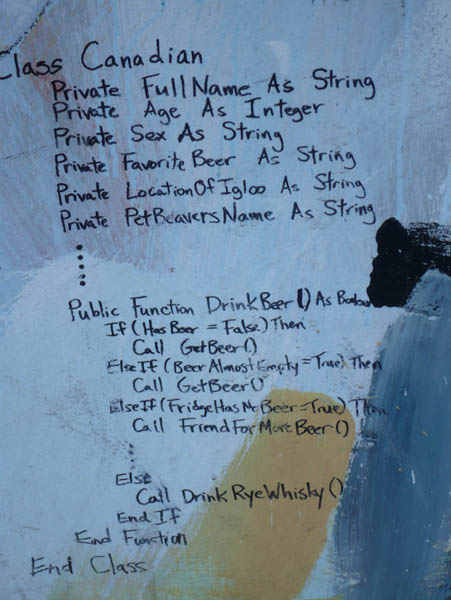 Class Canadian
Private FullName As String
Private Age As Integer
Private Sex As String
Private FavoriteBeer As String
Private LocationOfIgloo As String
Private PetBeaversName As String
Public Function DrinkBeer() As Boolean
If (HasBeer = False) Then
Call GetBeer()
ElseIf (BeerAlmostEmpty = True) Then
Call GetBeer()
ElseIf (FridgeHasNoBeer = True) Then
Call FriendForMoreBeer()
Else
Call DrinkRyeWhisky()
End If
End Function
End Class